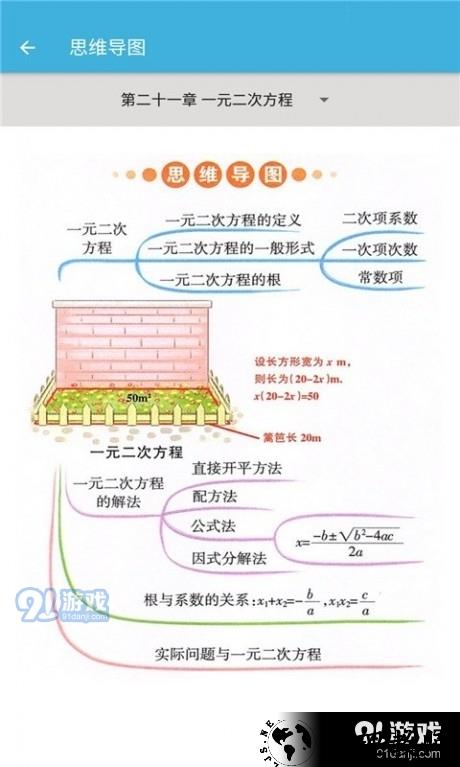 思维导图
第二十一章 一元二次方程
思维导图
一元二次
方程
一元二次方程的定义
一元二次方程的一般形式
一元二次方程的根
二次项系数
一次项次数
常数项
50m²
设长方形宽为 x m,
则长为(20-2x)m.
x(20-2x)=50
篱笆长 20m
一元二次方程
一元二次方程
的解法
直接开平方法
配方法
公式法
因式分解法
x=\frac{-b±\sqrt{b²-4ac}}{2a}
根与系数的关系:x₁+x₂=-\frac{b}{a},x₁x₂=\frac{c}{a}
实际问题与一元二次方程
91游戏
91danji.com
91游戏
91danji.com